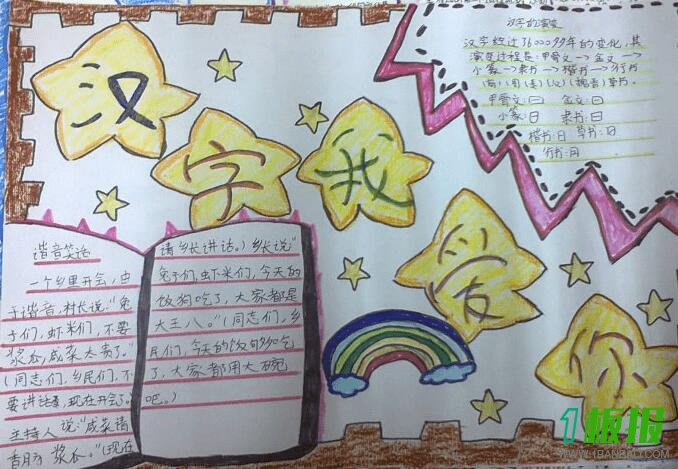 汉
字
我
爱
你
汉字的演变
汉字经过了6000多年的变化,其
演变过程是:甲骨文→金文→
小篆→隶书→楷书→行书
(商)(周)(秦)(汉)(魏晋)草书.
甲骨文:日 金文:日
小篆:日 隶书:日
楷书:日 草书:日
行书:日
谐音笑话
一个乡里开会,由
于谐音,村长说:“兔
子们,虾米们,不要
浆瓜,咸菜太贵了。”
(同志们,乡民们,不
要讲话,现在开会了。)
主持人说:“咸菜请
香肠浆瓜。”(现在
请乡长讲话。)乡长说:“
兔子们,虾米们,今天的
饭狗吃了,大家都是
大王八。”(同志们,乡
民们,今天的饭够吃
了,大家都用大碗
吧。)
1板报
WWW.1BANBAO.COM